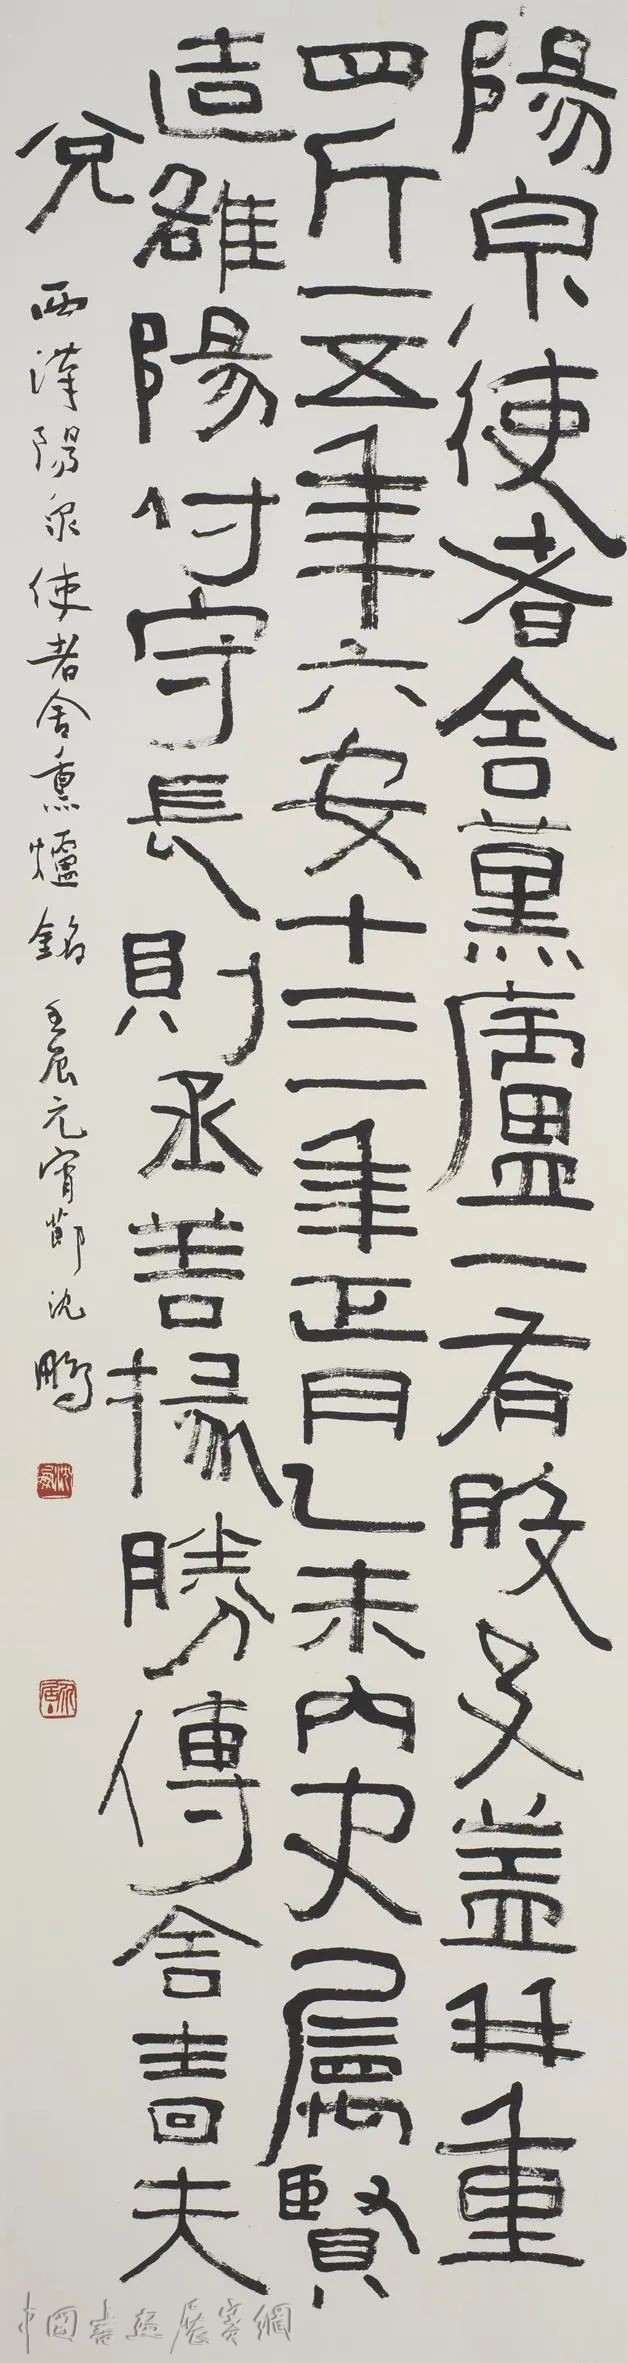 陽泉使者舍薰廬一有般及蓋并重
四斤一五年六安十三年正月乙未內史屬賢
造雒陽付守長則丞善掾勝傳舍嗇夫
兌
西漢陽泉使者舍熏爐銘 壬辰元宵節沈鵬
中国书画展赛網